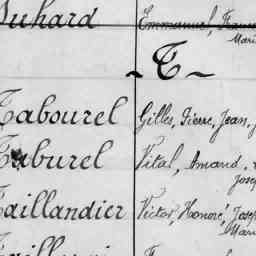 Suhard Emmanuel, 
Mari
~ T ~
Tabourel Gilles, Pierre, Jean,
Taburel Vital, Amand,
Josep
Taillandier Victor, Honoré, Josep
Mari